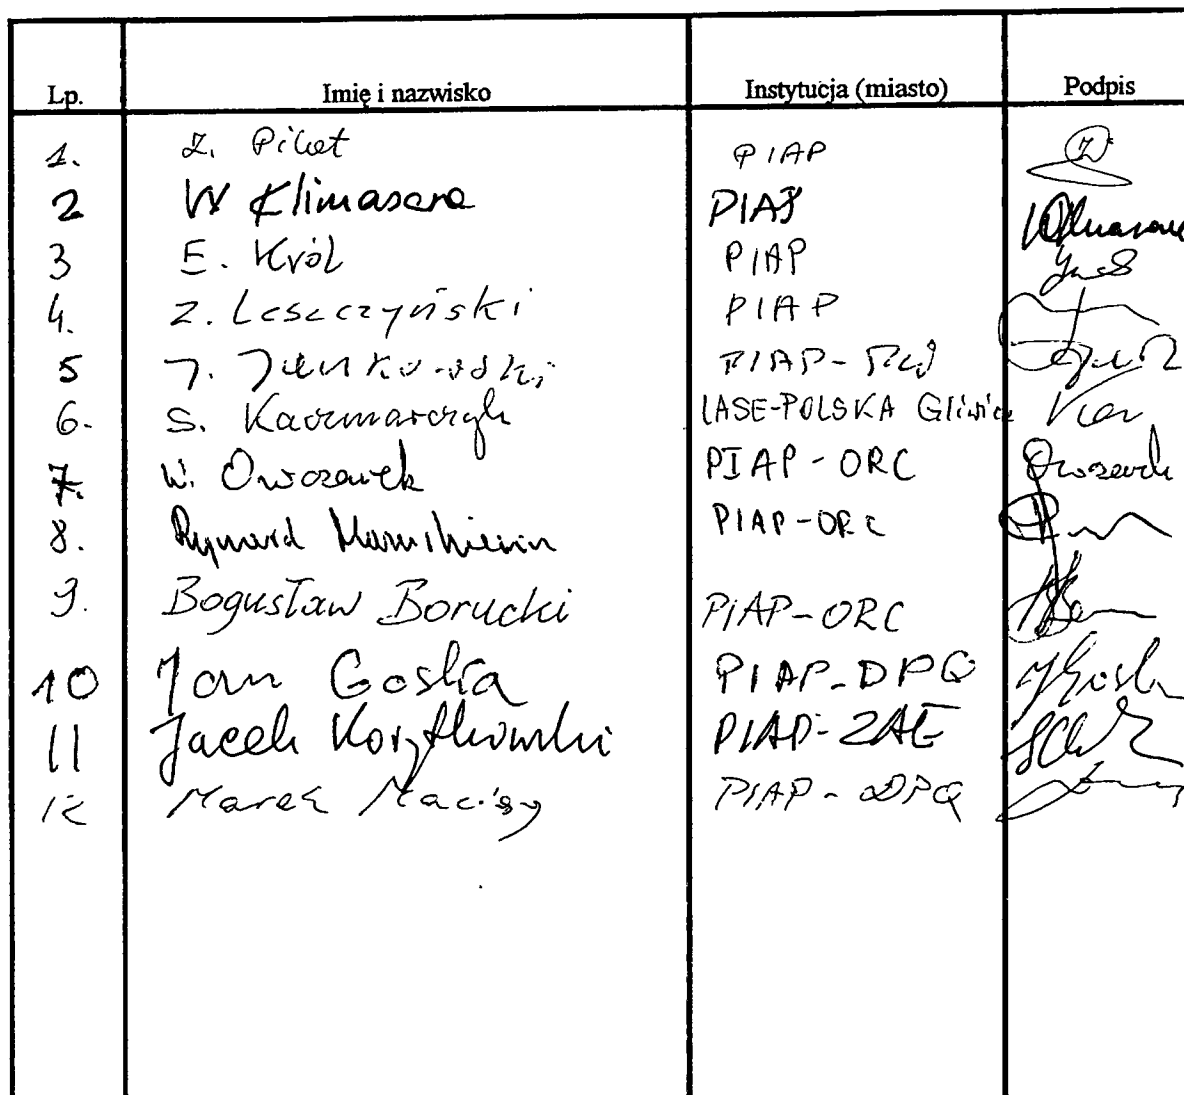 Lp. Imię i nazwisko Instytucja (miasto) Podpis
1. Z. Pilat PIAP
2 W Klimasara PIAP
3 E. Król PIAP
4. Z. Leszczyński PIAP
5 J. Jankowski PIAP-
6. S. Kaczmarczyk LASE-POLSKA Gliwice
7. W. Owczarek PIAP-ORC Owczarek
8. Ryszard PIAP-ORC
9. Bogusław Borucki PIAP-ORC
10 Jan Goska PIAP-DPQ
11 Jacek Korytkowski PIAP-ZAE
12 Marek Maciąg PIAP-DPQ